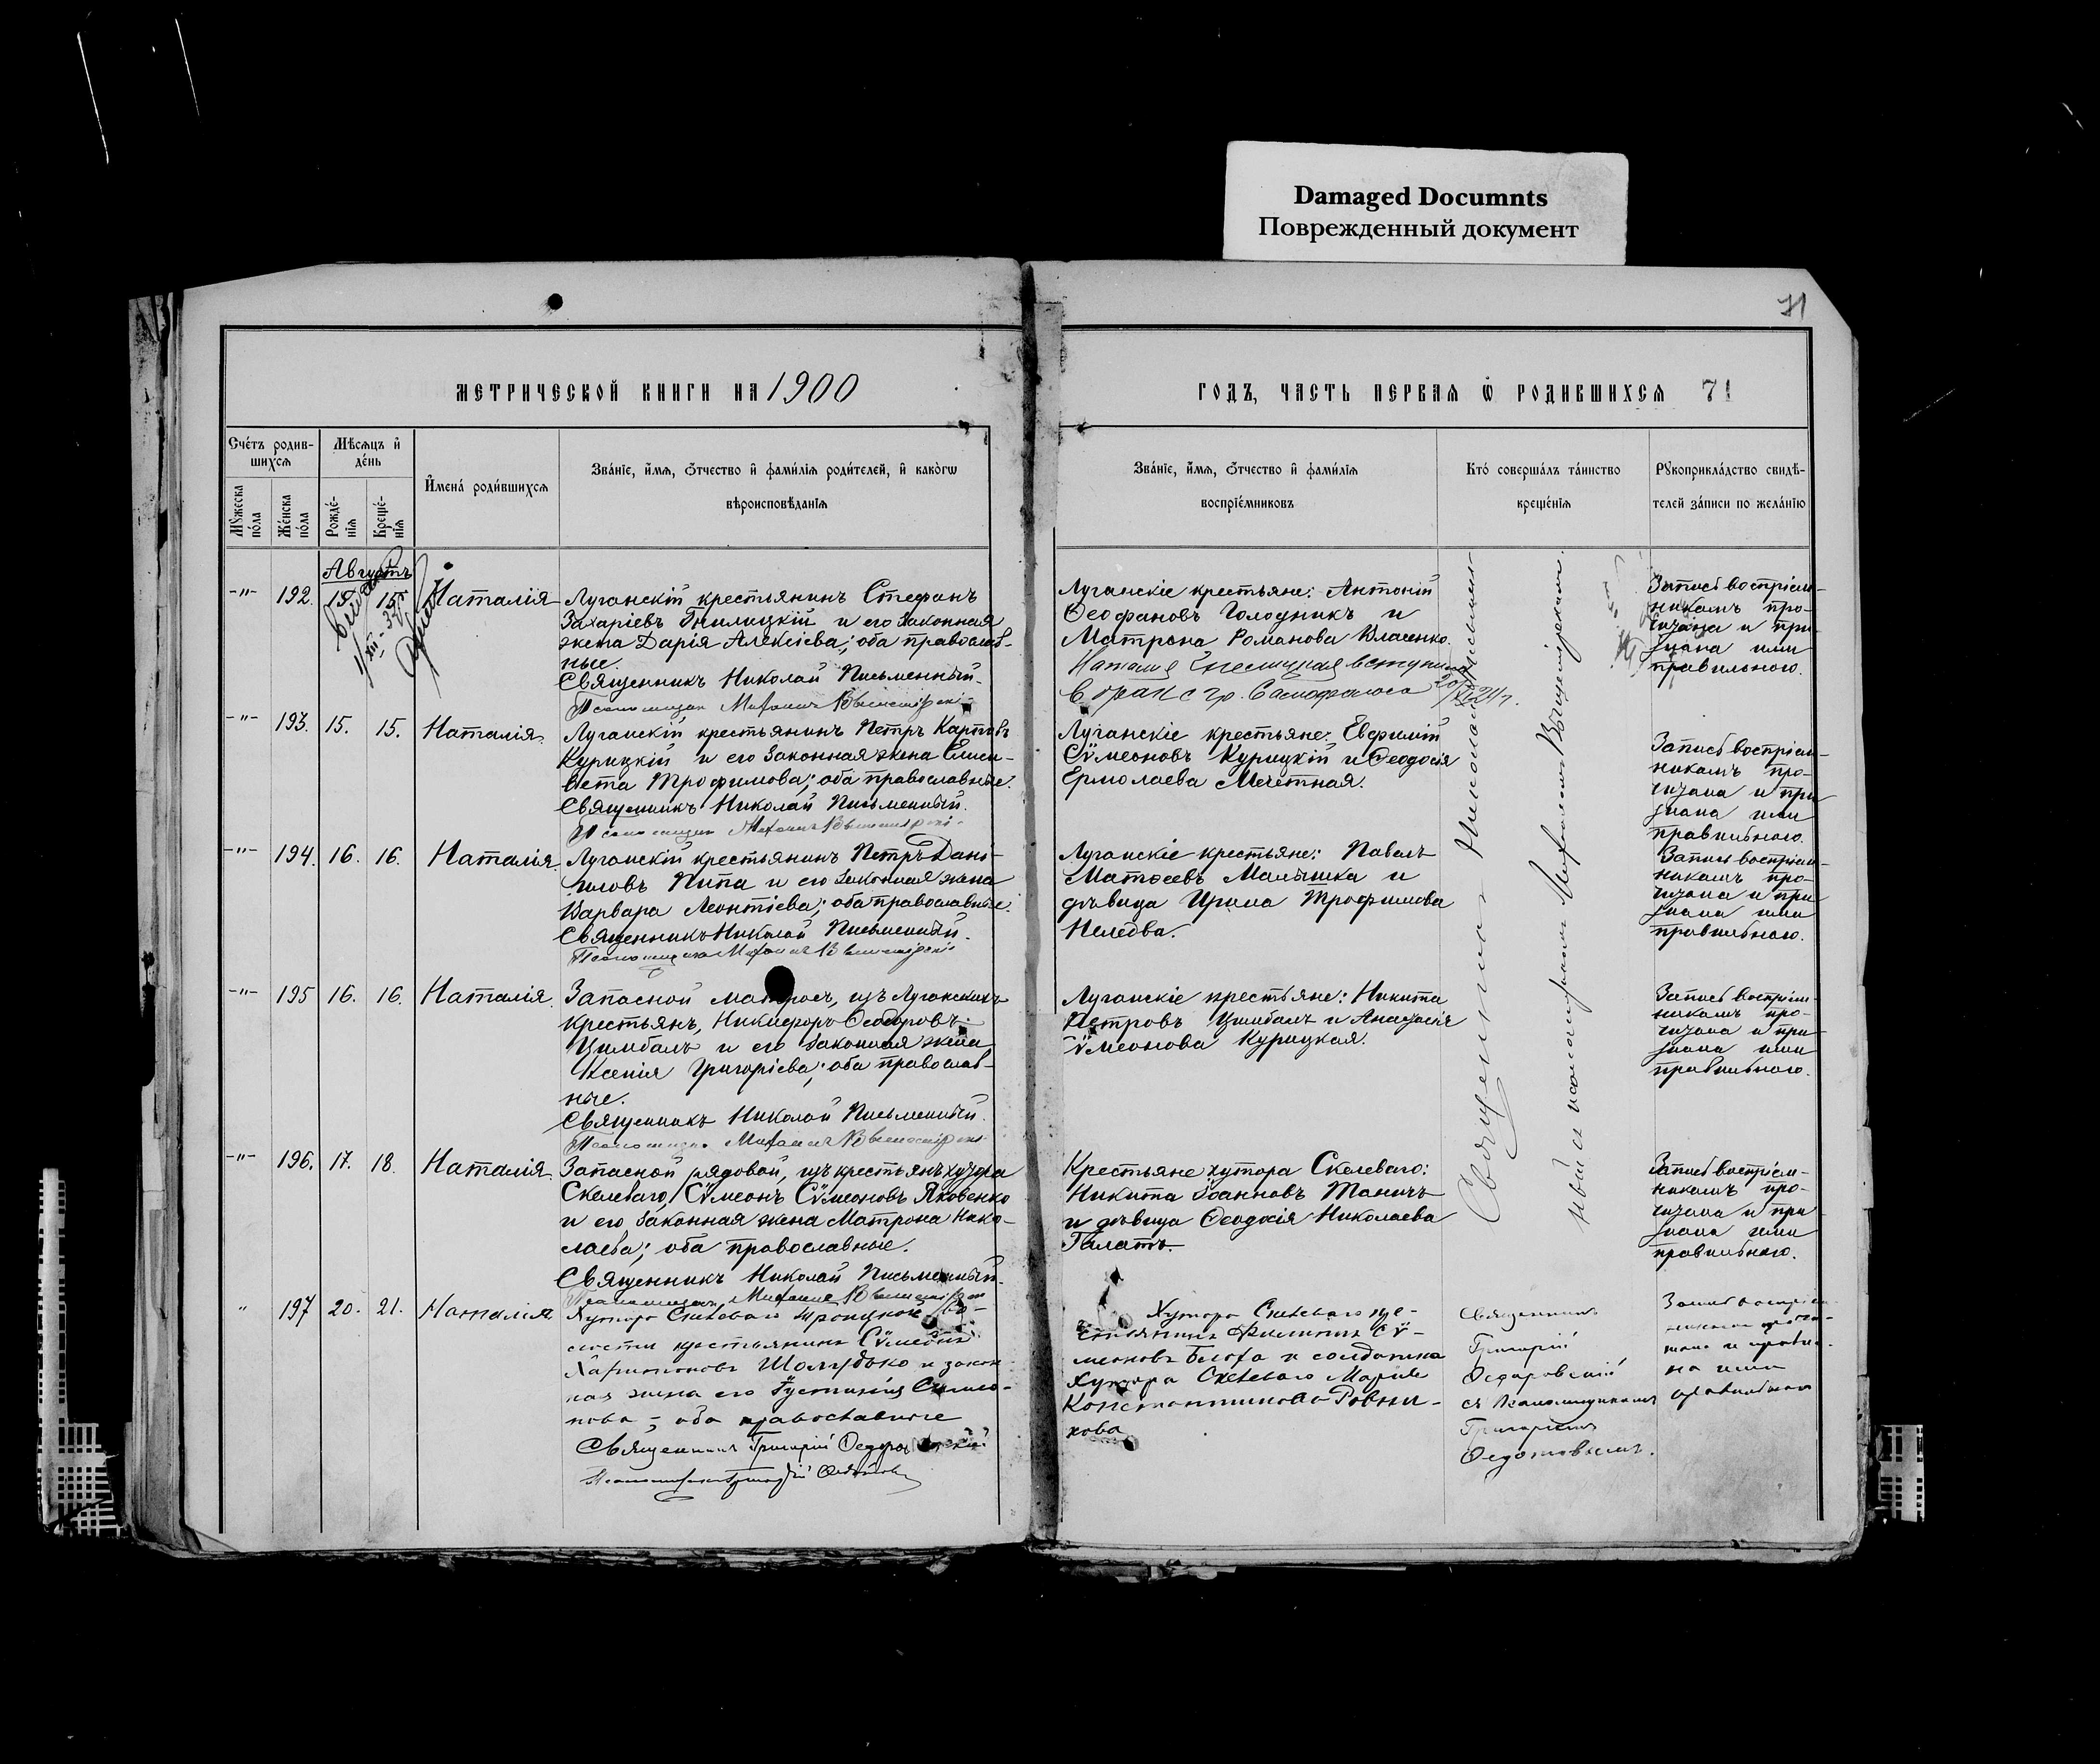 Damaged Documnts
Поврежденный документ
71
МЕТРИЧЕСКОЙ КНИГИ НА 1900
ГОДЪ, ЧАСТЬ ПЕРВАЯ Ѡ РОДИВШИХСЯ 71
Счетъ родив-
шихся
Мѣсяцъ и
день
Мужеска
пола
Женска
пола
Рожде-
нія
Креще-
нія
Имена родившихся
Званіе, имя, отчество и фамилія родителей, и какогѡ
вѣроисповѣданія
Званіе, имя, отчество и фамилія
воспріемниковъ
Кто совершалъ таинство
крещенія
Рукоприкладство свидѣ-
телей записи по желанію
Августъ
-"- 192. 15 15 Наталія
Луганскій крестьянинъ Стефанъ
Захаріевъ Гнилицкій и его законная
жена Дарія Алексіева; оба православ-
ные.
Священникъ Николай Письменный.
Псаломщик Михаил
Луганскіе крестьяне: Антоній
Ѳеофановъ Голодникъ и
Матрона Романова Власенко.
Наталия Гнилицкая вступила
в брак с гр.
Запись воспріем-
никамъ про-
читана и при-
знана ими
правильною.
-"- 193. 15. 15. Наталія.
Луганскій крестьянинъ Петръ Карповъ
Курицкій и его законная жена Елиса-
вета Трофимова; оба православные.
Священникъ Николай Письменный.
Псаломщик Михаил
Луганскіе крестьяне: Евфимій
Сѵмеоновъ Курицкій и Ѳеодосія
Ермолаева Мечетная.
Запись воспріем-
никамъ про-
читана и при-
знана ими
правильною.
-"- 194. 16. 16. Наталія.
Луганскій крестьянинъ Петръ Дані-
иловъ Пипа и его законная жена
Варвара Леонтіева; оба православные.
Священникъ Николай Письменный.
Псаломщик Михаил
Луганскіе крестьяне: Павелъ
Матѳеевъ Малышка и
дѣвица Ирина Трофимова
Запись воспріем-
никамъ про-
читана и при-
знана ими
правильною.
-"- 195 16. 16. Наталія.
Запасной матросъ, изъ Луганскихъ
крестьянъ, Никифоръ Ѳеодоровъ
Цимбалъ и его законная жена
Ксенія Григоріева; оба православ-
ные.
Священникъ Николай Письменный.
Псаломщик Михаил
Луганскіе крестьяне: Никита
Петровъ Цимбалъ и Анастасія
Сѵмеонова Курицкая.
Запись воспріем-
никамъ про-
читана и при-
знана ими
правильною.
-"- 196. 17. 18. Наталія.
Запасной рядовой, изъ крестьянъ хутора
Скелеваго, Сѵмеонъ Сѵмеоновъ Яковенко
и его законная жена Матрона Нико-
лаева; оба православные.
Священникъ Николай Письменный.
Псаломщик Михаил
Крестьяне хутора Скелеваго:
Никита Іоанновъ Таничъ
и дѣвица Ѳеодосія Николаева
Галатъ.
Запись воспріем-
никамъ про-
читана и при-
знана ими
правильною.
Священникъ Николай Письмен-
ный и псаломщикъ Михаилъ
" 197 20. 21. Наталія
Хутора Скелеваго Троицкой во-
лости крестьянинъ Сѵмеонъ
Харитоновъ и закон-
ная жена его Іустинія Симео-
нова; оба православные
Священник Григорій
Псаломщик
Хутора Скелеваго кре-
стьянинъ Филиппъ Сѵ-
меоновъ Блоха и солдатка
хутора Скелеваго Марія
Константинова Ровни-
кова
Священникъ
Григорій
Ѳедоровскій
съ псаломщикомъ
Григоріемъ
Ѳедотовымъ.